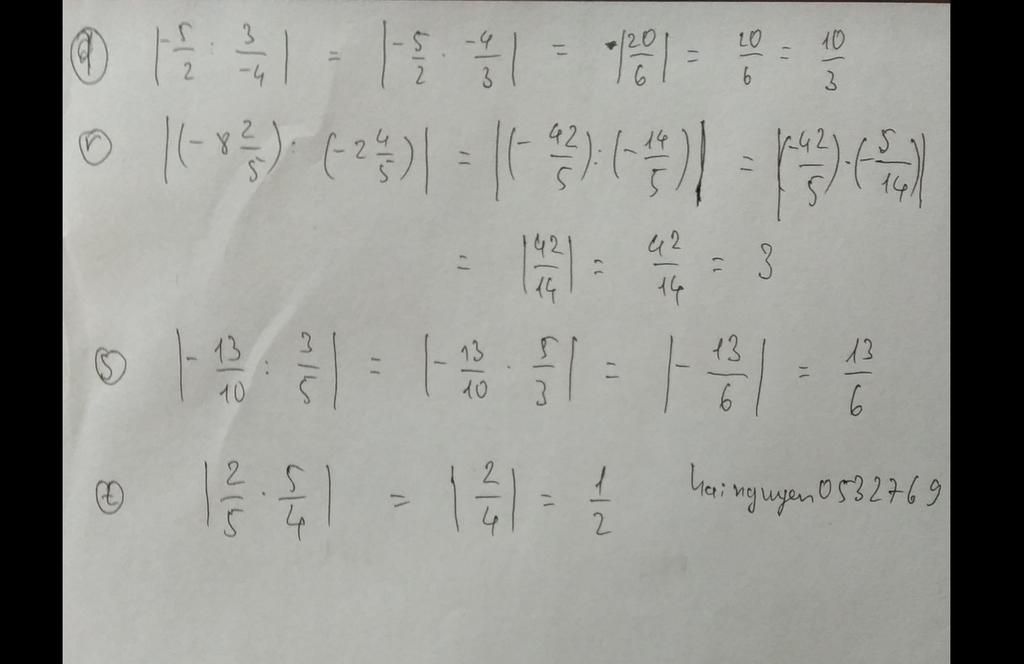 q) |-5/2 : 3/-4| = |-5/2 · -4/3| = |20/6| = 20/6 = 10/3
r) |(-8 2/5) : (-2 4/5)| = |(-42/5) : (-14/5)| = |(-42/5) · (-5/14)|
= |42/14| = 42/14 = 3
s) |-13/10 : 3/5| = |-13/10 · 5/3| = |-13/6| = 13/6
t) |2/5 · 5/4| = |2/4| = 1/2 hainguyen0532769